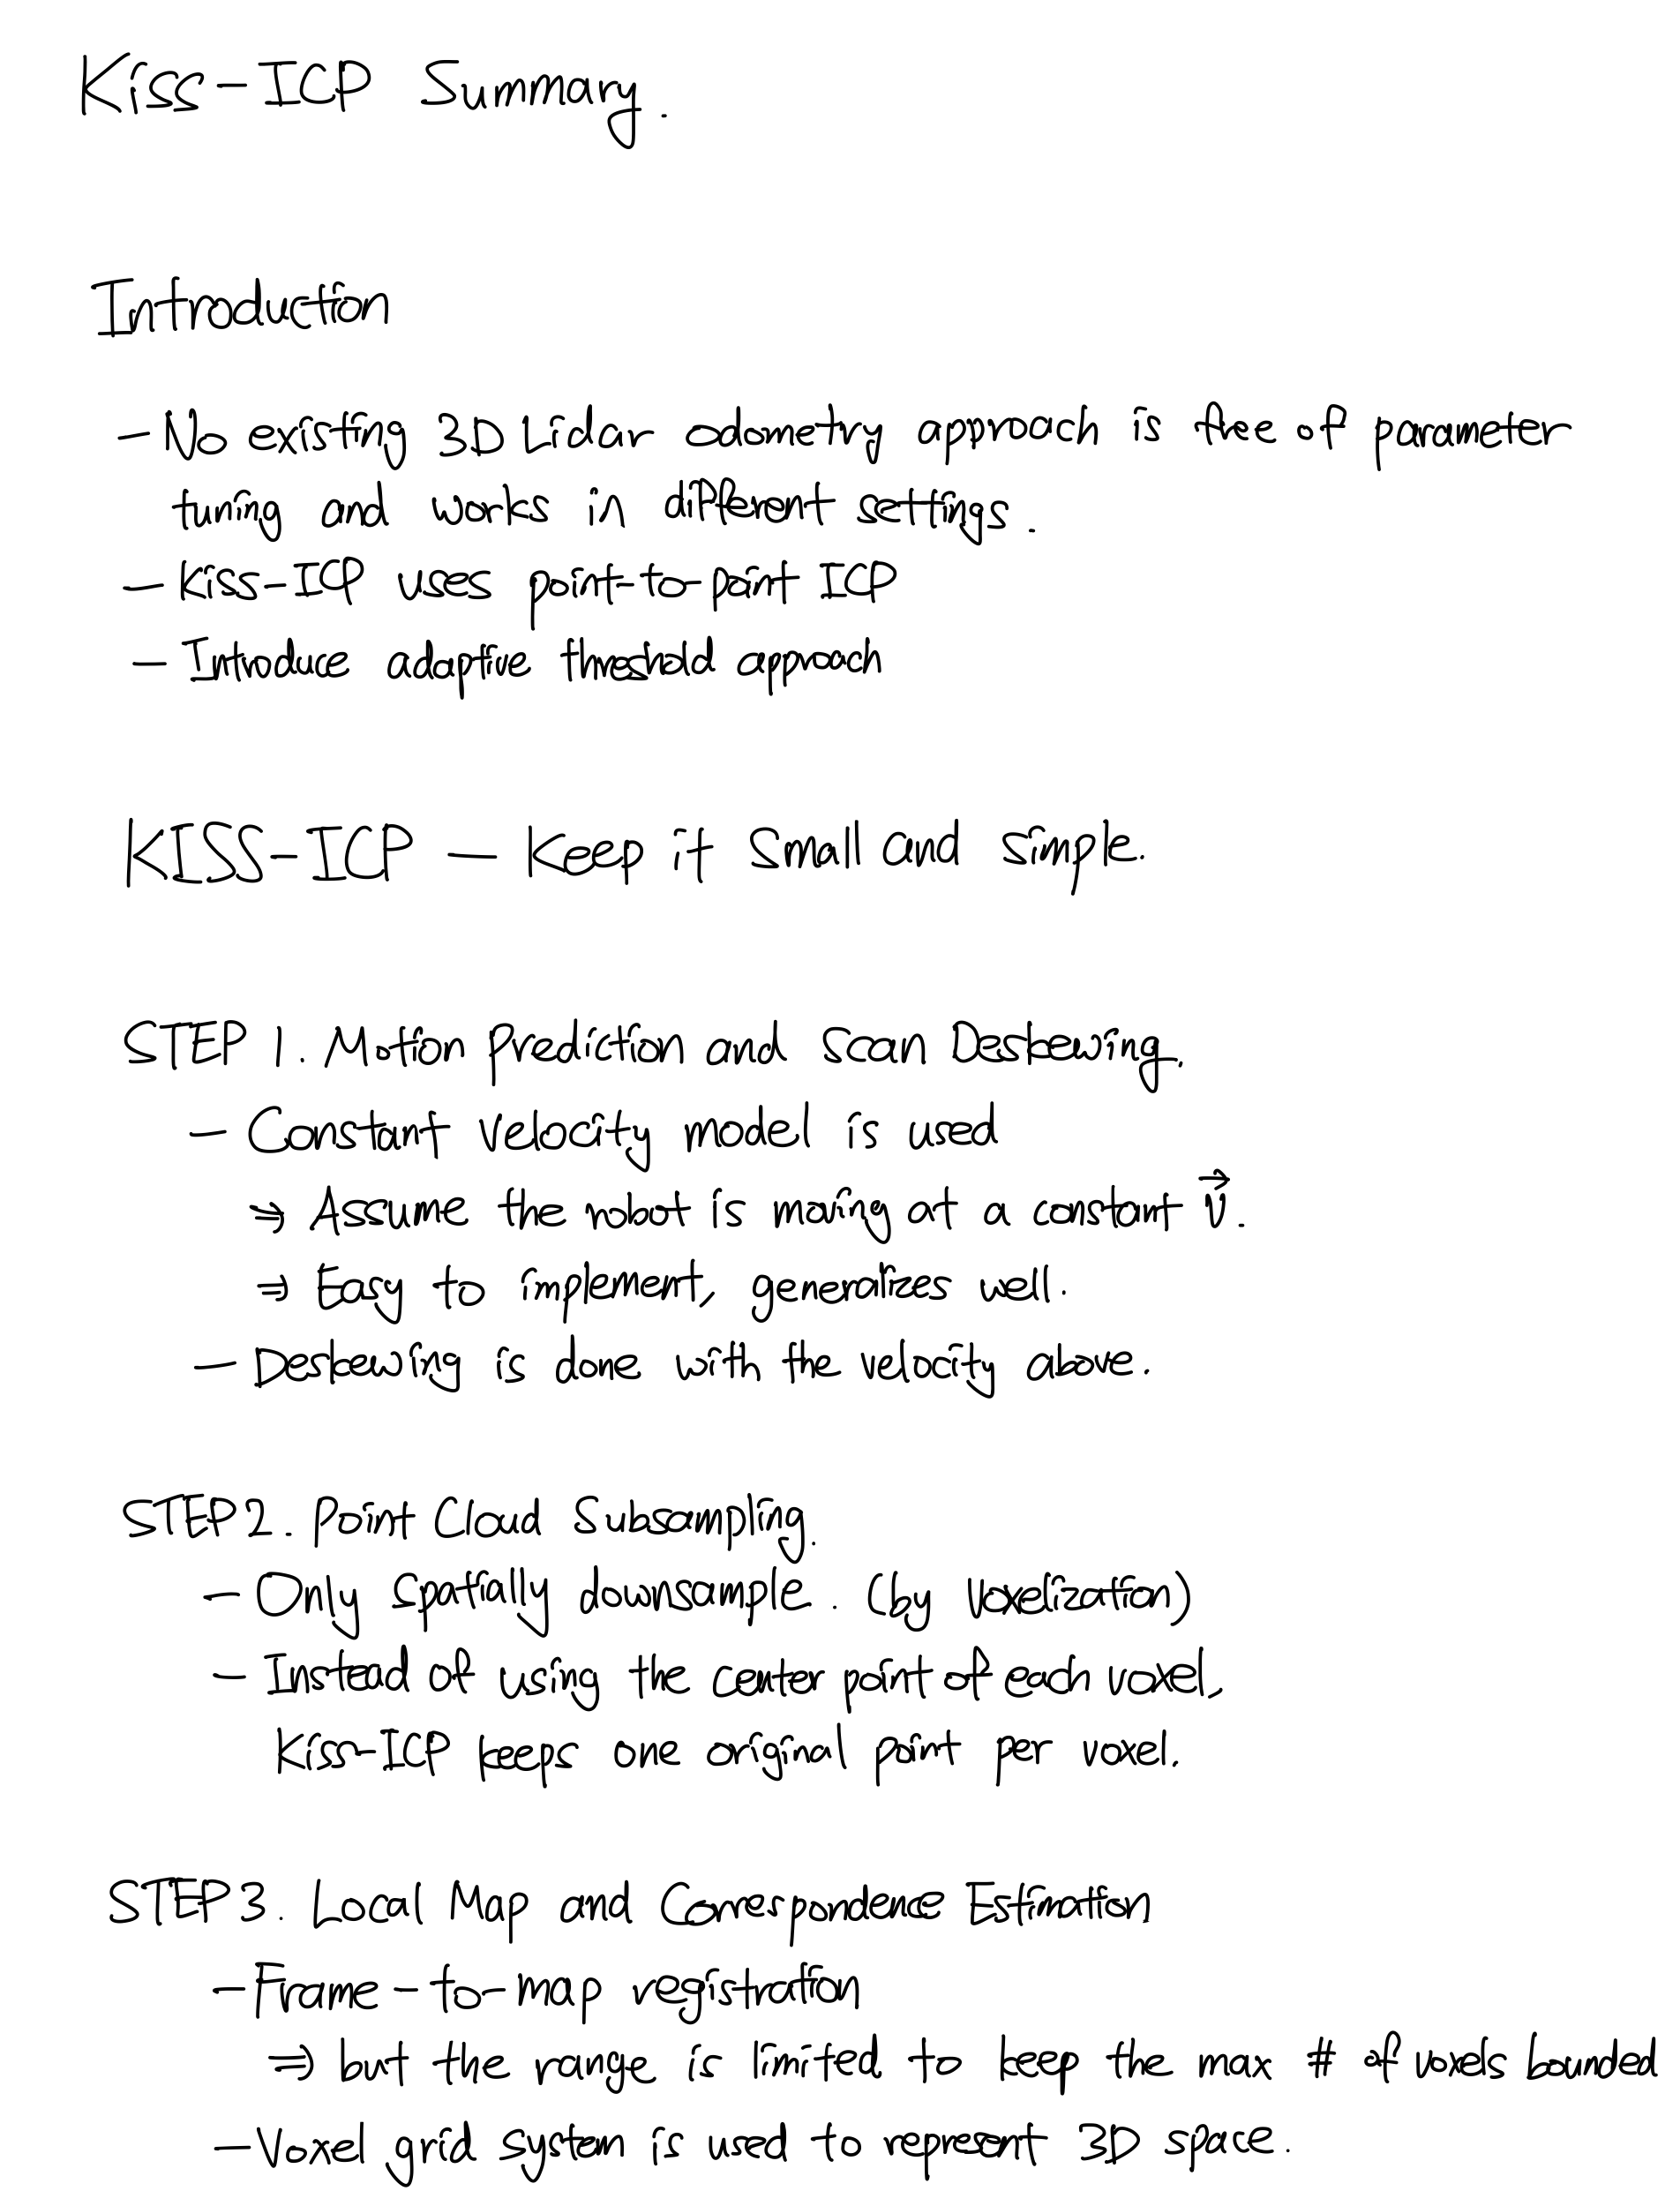 Kiss-ICP Summary.
Introduction
- No existing 3D Lidar odometry approach is free of parameter
tuning and works in different settings.
- Kiss-ICP uses point-to-point ICP
- Introduce adaptive threshold approach
KISS-ICP - Keep it Small and Simple.
STEP 1. Motion Prediction and Scan Deskewing.
- Constant velocity model is used
⇒ Assume the robot is moving at a constant v⃗.
⇒ Easy to implement, generalizes well.
- Deskewing is done with the velocity above.
STEP 2. Point Cloud Subsampling.
- Only spatially downsample. (by voxelization)
- Instead of using the center point of each voxel,
Kiss-ICP keeps one original point per voxel.
STEP 3. Local Map and Correspondence Estimation
- Frame-to-map registration
⇒ but the range is limited to keep the max # of voxels bounded
- Voxel grid system is used to represent 3D space.